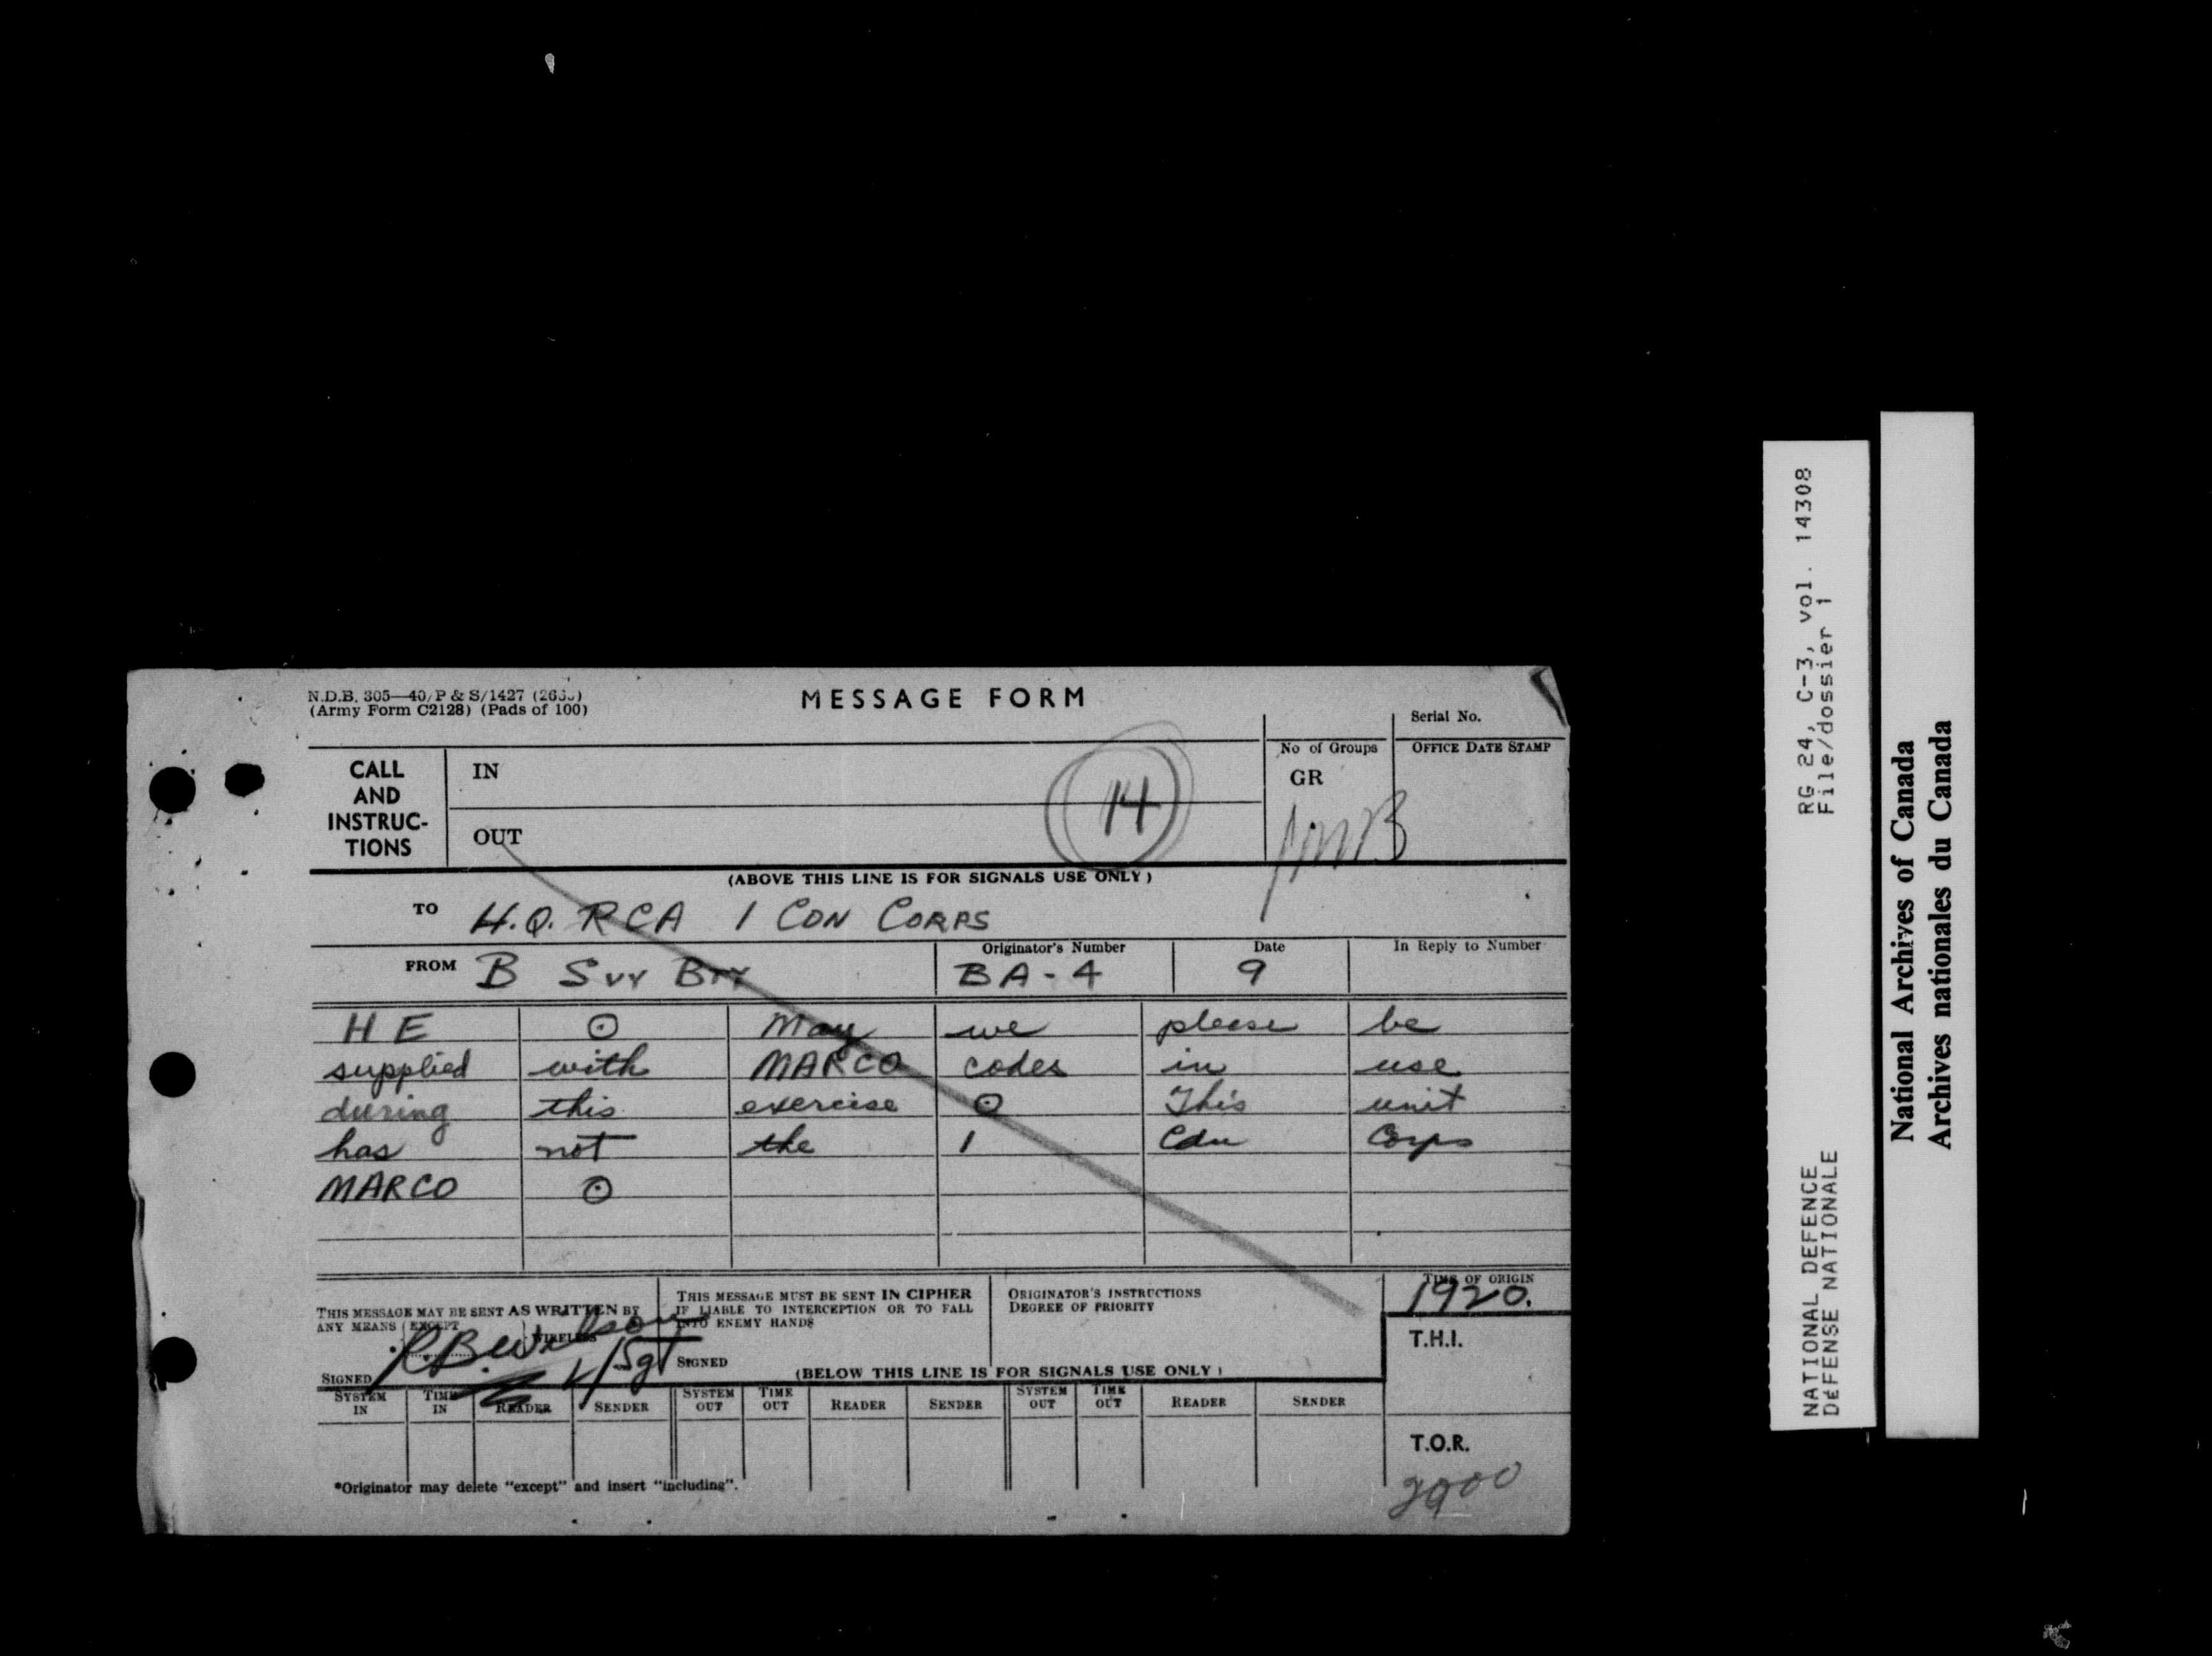 N.D.B. 305—40/P & S/1427
(Army Form C2128) (Pads of 100)
MESSAGE FORM
Serial No.
CALL AND INSTRUC-TIONS
IN
OUT
14
No of Groups
GR
OFFICE DATE STAMP
(ABOVE THIS LINE IS FOR SIGNALS USE ONLY)
TO H.Q. RCA 1 CDN CORPS
FROM B Svy Bty
Originator's Number
BA-4
Date
9
In Reply to Number
H E ⊙ May we please be
supplied with MARCO codes in use
during this exercise ⊙ This unit
has not the 1 Cdn Corps
MARCO ⊙
THIS MESSAGE MAY BE SENT AS WRITTEN BY
ANY MEANS (EXCEPT WIRELESS
SIGNED R.B. Wilson /Sgt
THIS MESSAGE MUST BE SENT IN CIPHER
IF LIABLE TO INTERCEPTION OR TO FALL
INTO ENEMY HANDS
SIGNED
ORIGINATOR'S INSTRUCTIONS
DEGREE OF PRIORITY
TIME OF ORIGIN
1920.
T.H.I.
(BELOW THIS LINE IS FOR SIGNALS USE ONLY)
SYSTEM IN TIME IN READER SENDER SYSTEM OUT TIME OUT READER SENDER SYSTEM OUT TIME OUT READER SENDER
T.O.R.
2000
*Originator may delete "except" and insert "including".
NATIONAL DEFENCE RG 24, C-3, vol. 14308
DéFENSE NATIONALE File/dossier 1
National Archives of Canada
Archives nationales du Canada